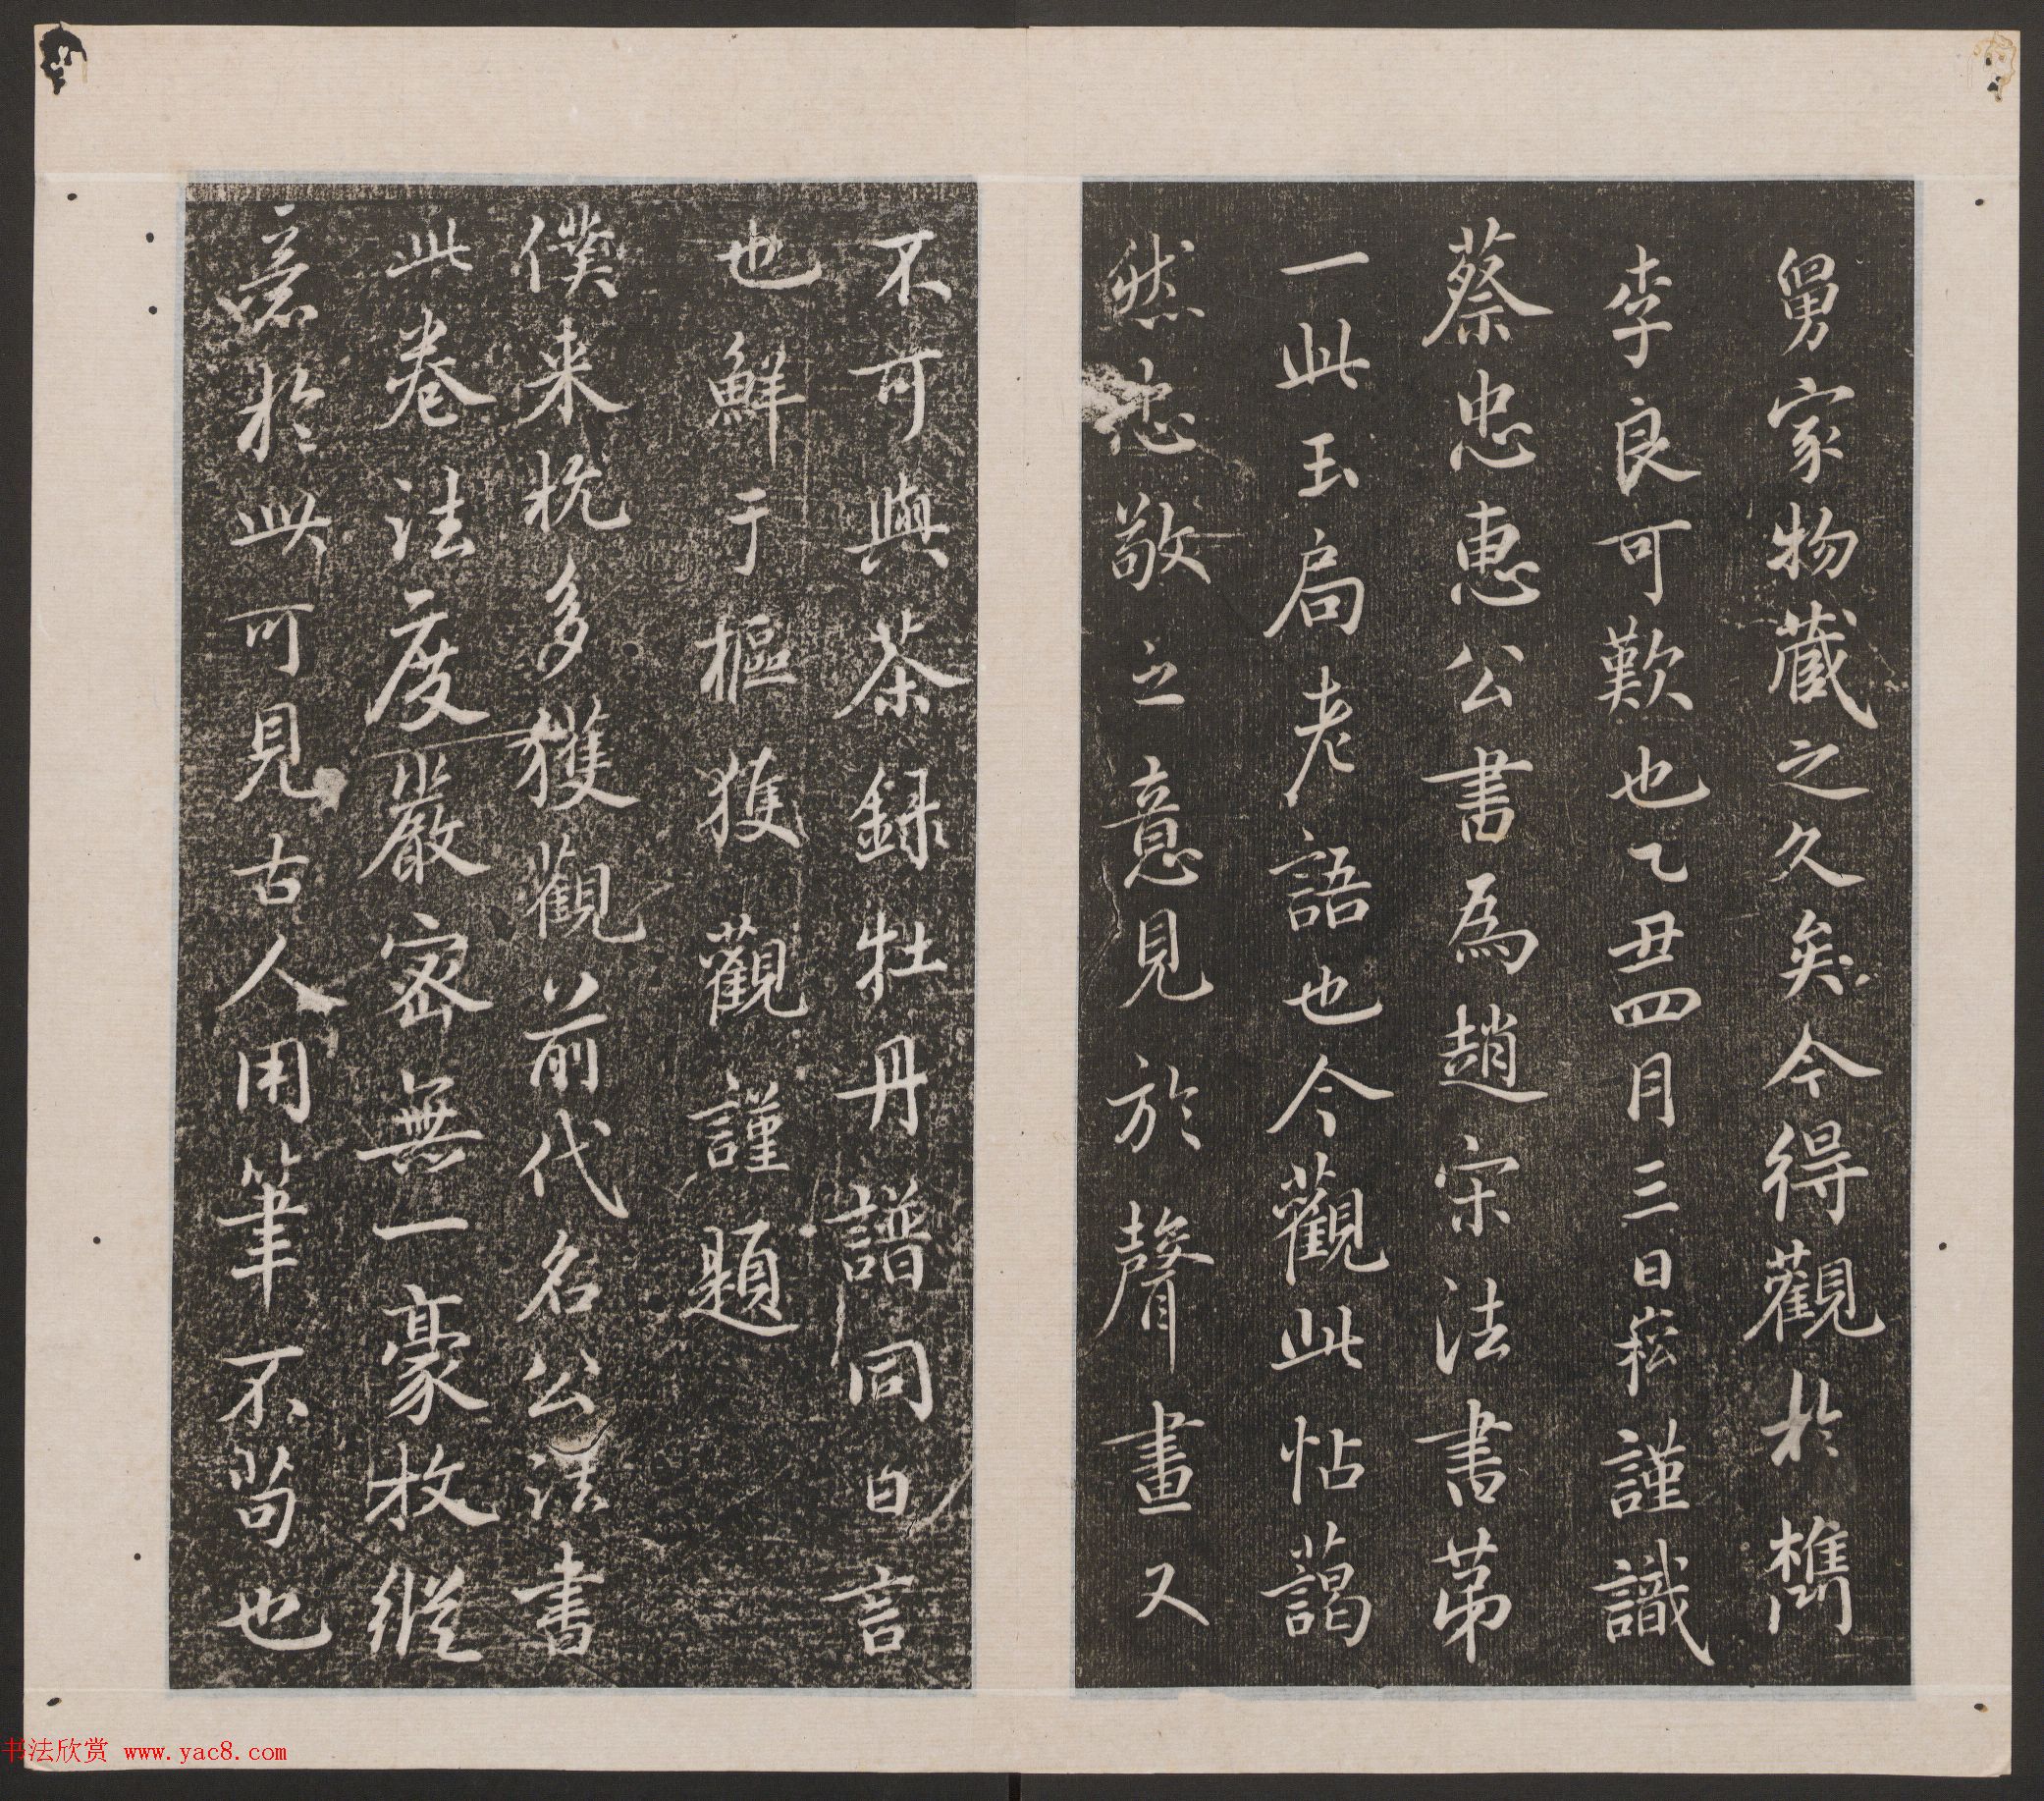 舅家物藏之久矣今得觀於檇
李良可歎也乙丑四月三日崧謹識
蔡忠惠公書為趙宋法書苐
一此玉局老語也今觀此帖藹
然忠敬之意見於聲畫又
不可與茶録牡丹譜同日言
也鮮于樞獲觀謹題
僕来杭多獲觀前代名公法書
此卷法度嚴密無一豪放縱
意於此可見古人用筆不苟也
书法欣赏 www.yac8.com